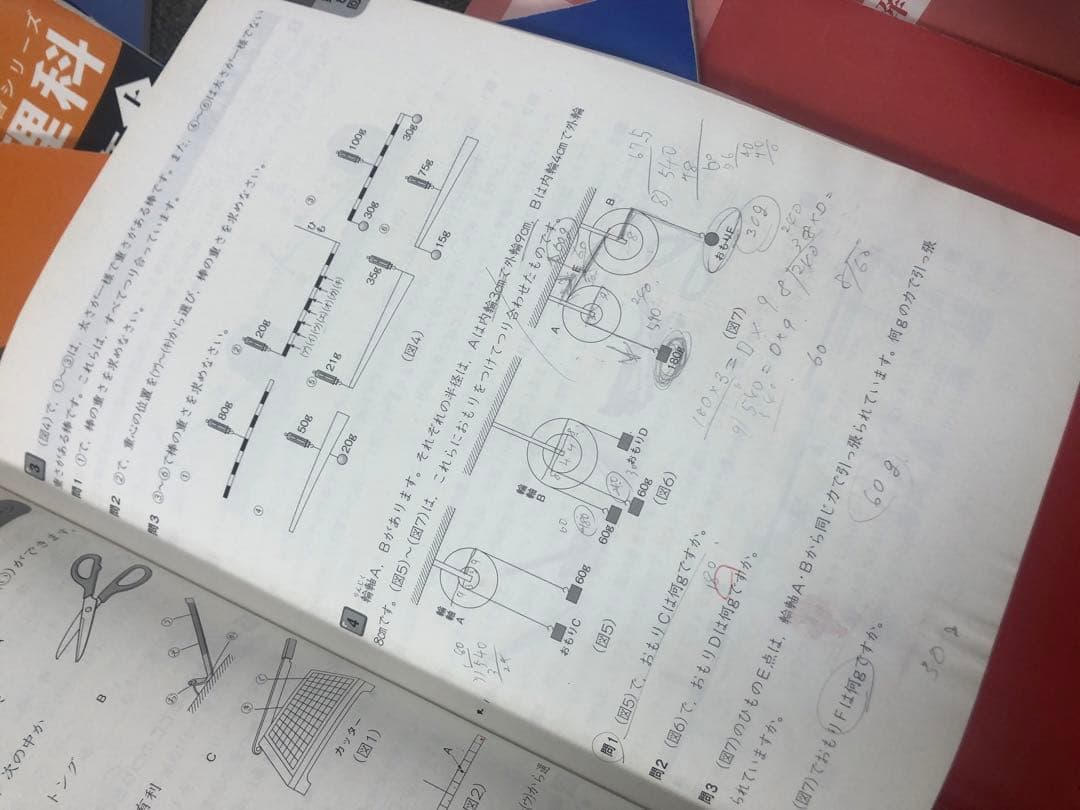 シリーズ
理科
3 (図4)で、①〜③は、太さが一様で重さがある棒です。また、④〜⑥は太さが一様でない
重さがある棒です。これらは、すべてつり合っています。
問1 ①で、棒の重さを求めなさい。
問2 ②で、重心の位置を(ア)〜(キ)から選び、棒の重さを求めなさい。
問3 ③〜⑥で棒の重さを求めなさい。
①
80g
②
20g
(ア)(イ)(ウ)(エ)(オ)(カ)(キ)
③
ひも
100g
30g
30g
④
50g
20g
⑤
21g
35g
⑥
75g
15g
(図4)
4 輪軸A、Bがあります。それぞれの半径は、Aは内輪3cmで外輪9cm、Bは内輪4cmで外輪
りんじく
8cmです。(図5)〜(図7)は、これらにおもりをつけてつり合わせたものです。
輪軸A
おもりC
60g
(図5)
輪軸B
60g
60g
おもりD
(図6)
A
B
E
180g
おもりF
30g
(図7)
180×3=□×9
540=□×9
60
67.5
8)540
48
60
56
40
40
0
問1 (図5)で、おもりCは何gですか。
問2 (図6)で、おもりDは何gですか。
問3 (図7)のひものE点は、輪軸A・Bから同じ力で引っ張られています。何gの力で引っ張
られていますか。
60g
(図7)でおもりFは何gですか。
次の中か
トング
有利
B
C
カッター
(図1)
A
図2)
ができます。